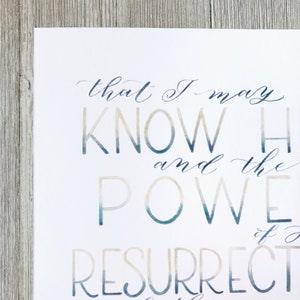 that I may
KNOW H
and the
POWE
of
RESURRECT